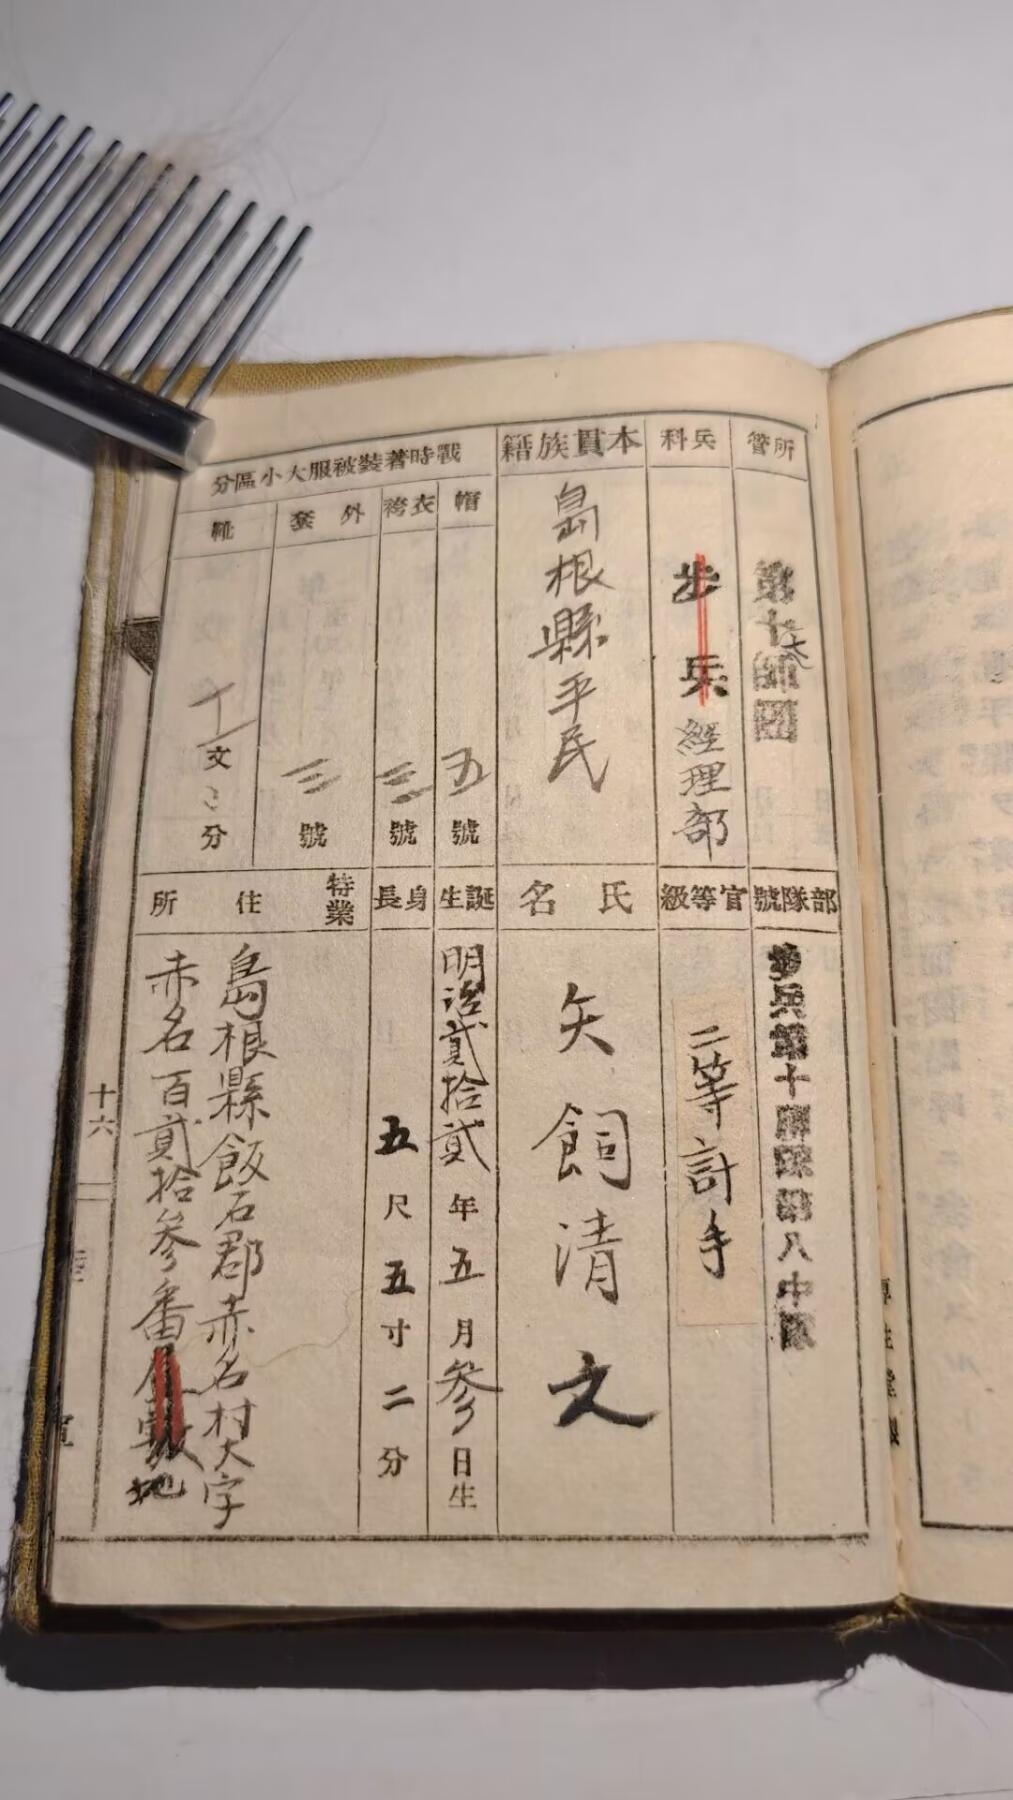 所管
第十師団
六
兵科
歩兵
経理部
本貫族籍
島根縣平民
戰時著裝被服大小區分
帽
五號
衣袴
三號
外套
三號
靴
十文
分
部隊號
歩兵第十聯隊第八中隊
官等級
二等計手
氏名
矢飼清文
誕生
明治貳拾貳年五月参日生
身長
五尺五寸二分
特業
住所
島根縣飯石郡赤名村大字
赤名百貳拾参番屋敷
地
十六